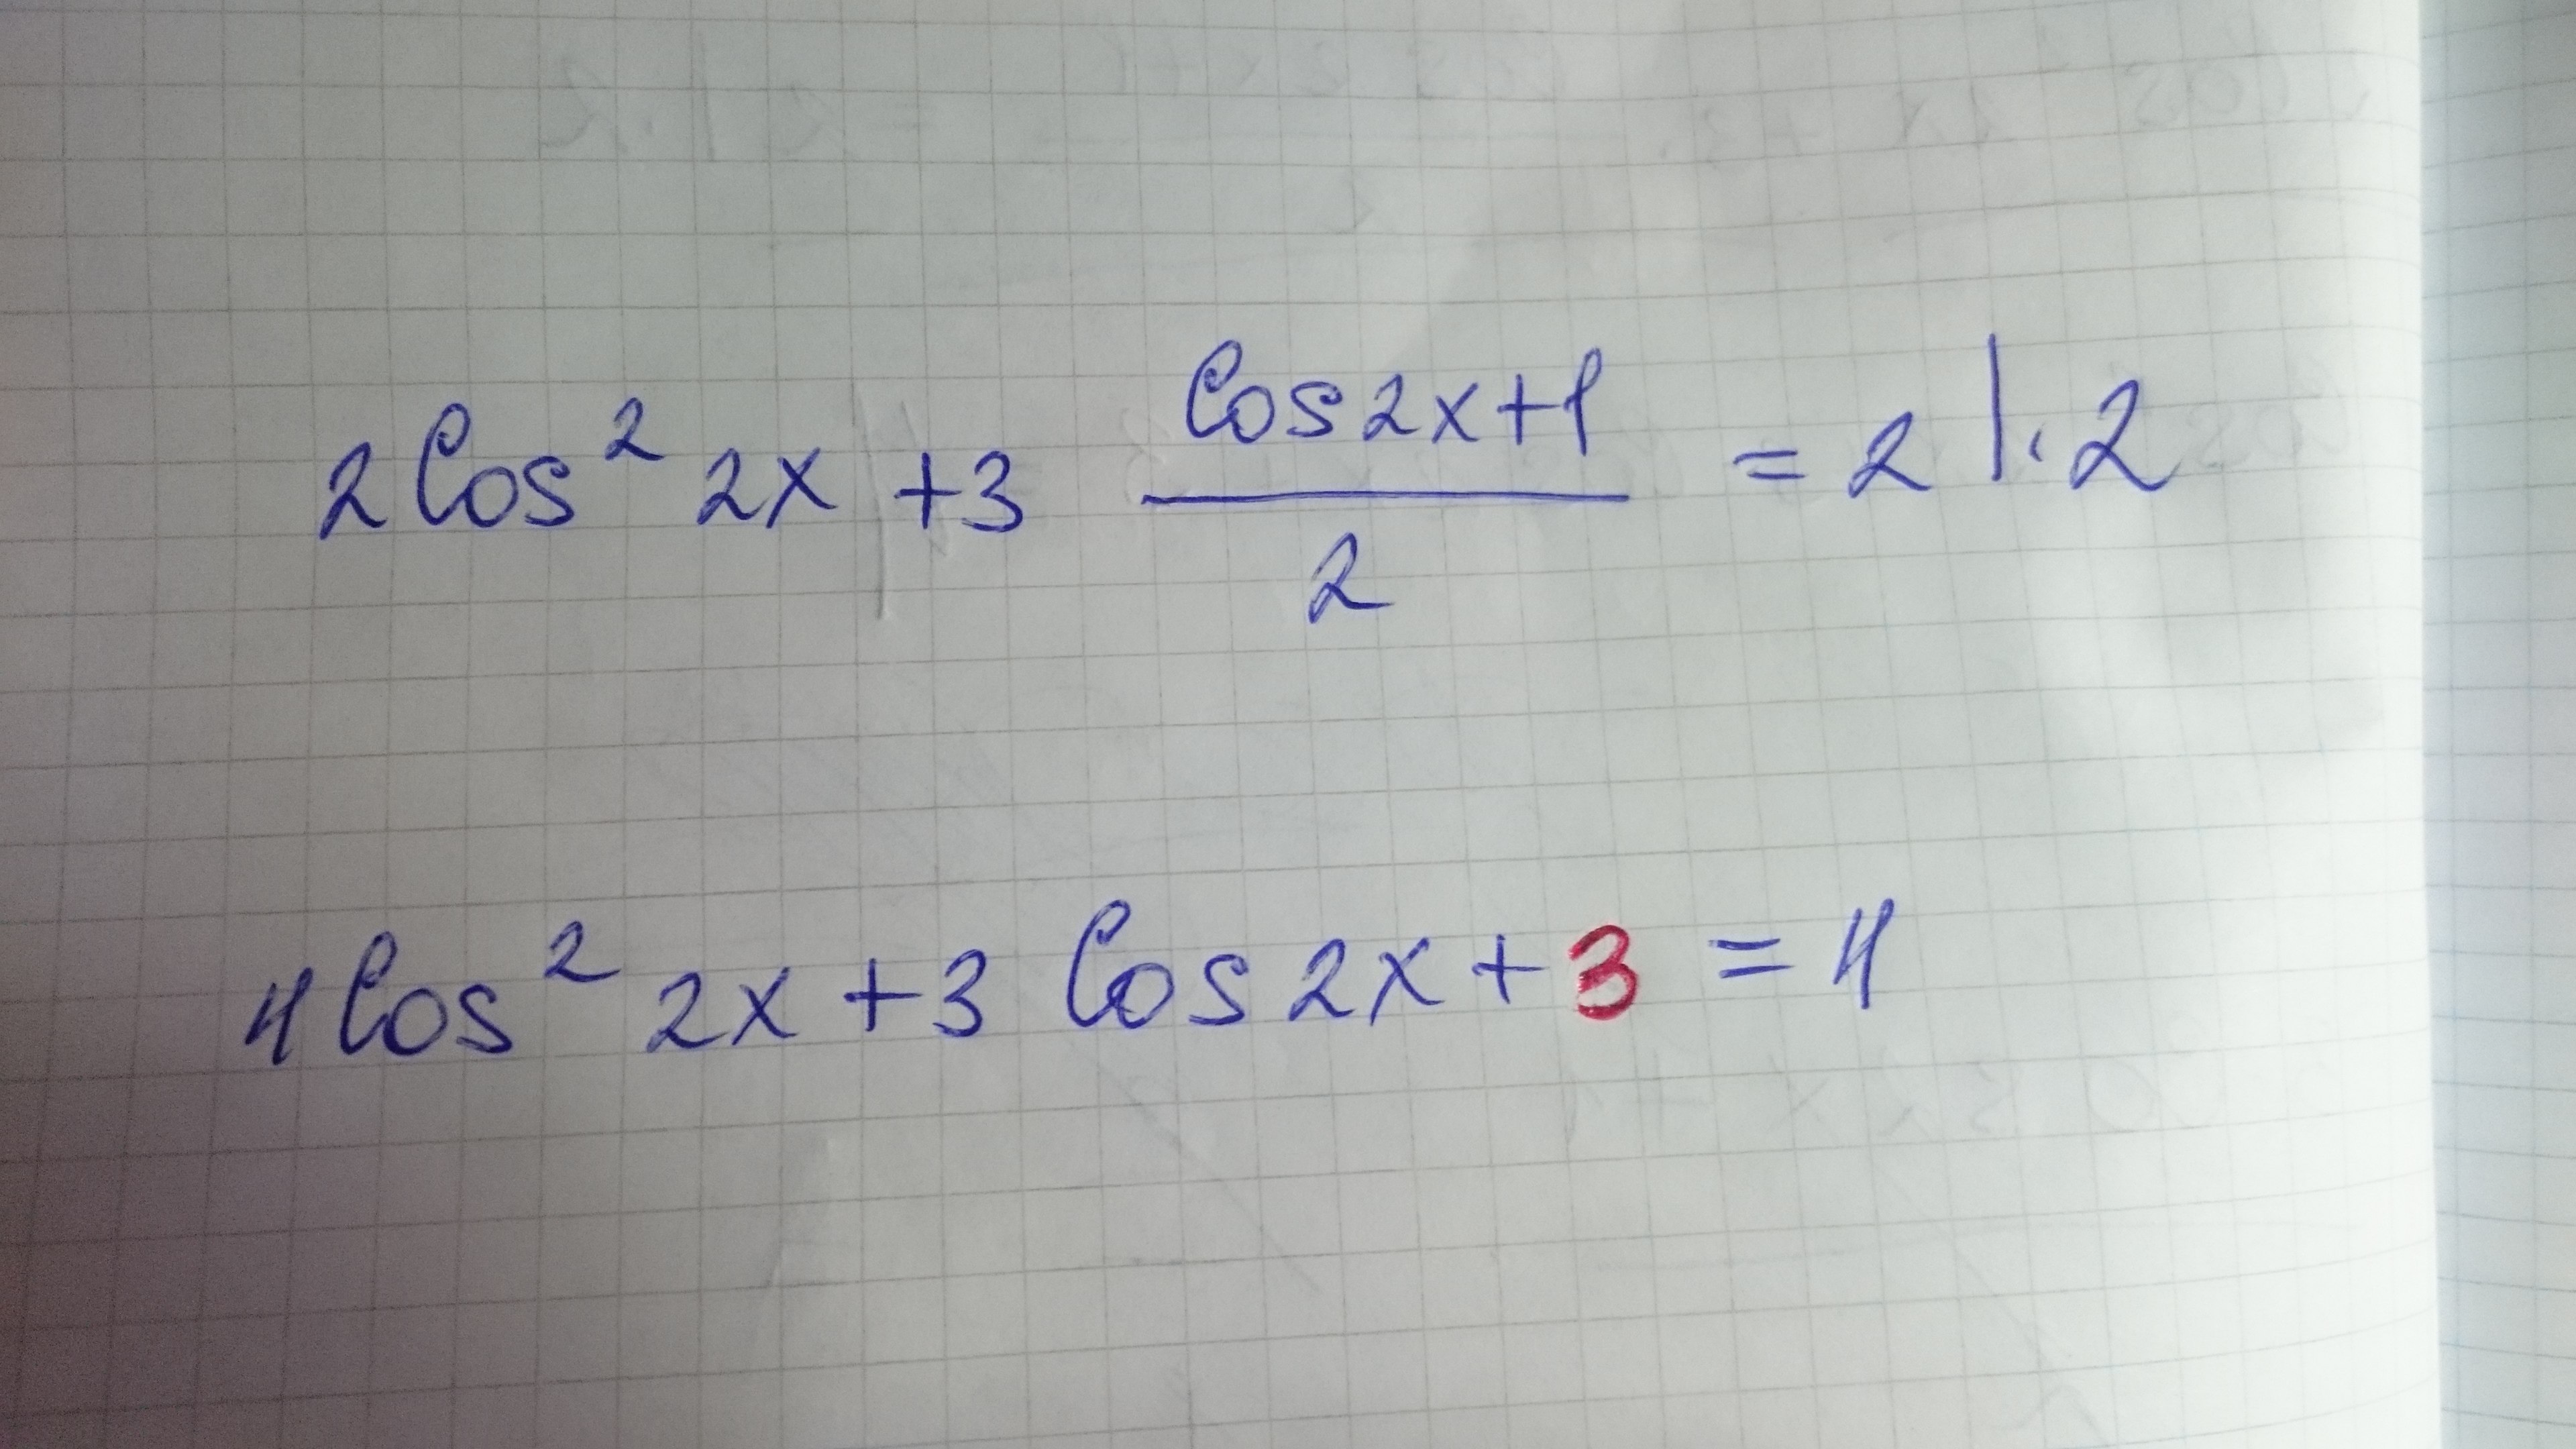 2cos² 2x + 3 (cos2x+1)/2 = 2 |·2
4cos² 2x + 3 cos 2x + 3 = 4